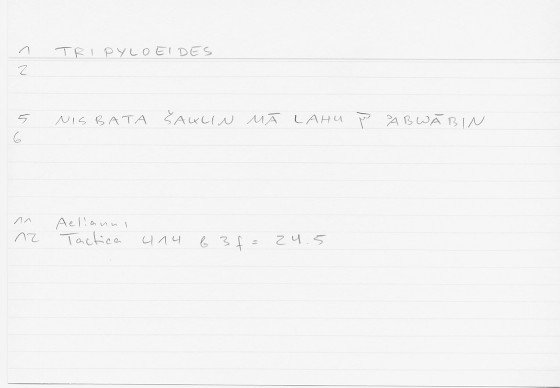 1 TRIPYLOEIDES
2
5 NISBATA ŠAKLIN MĀ LAHU P̄ ABWĀBIN
6
11 Aelianus
12 Tactica 414 b 3f = 24.5